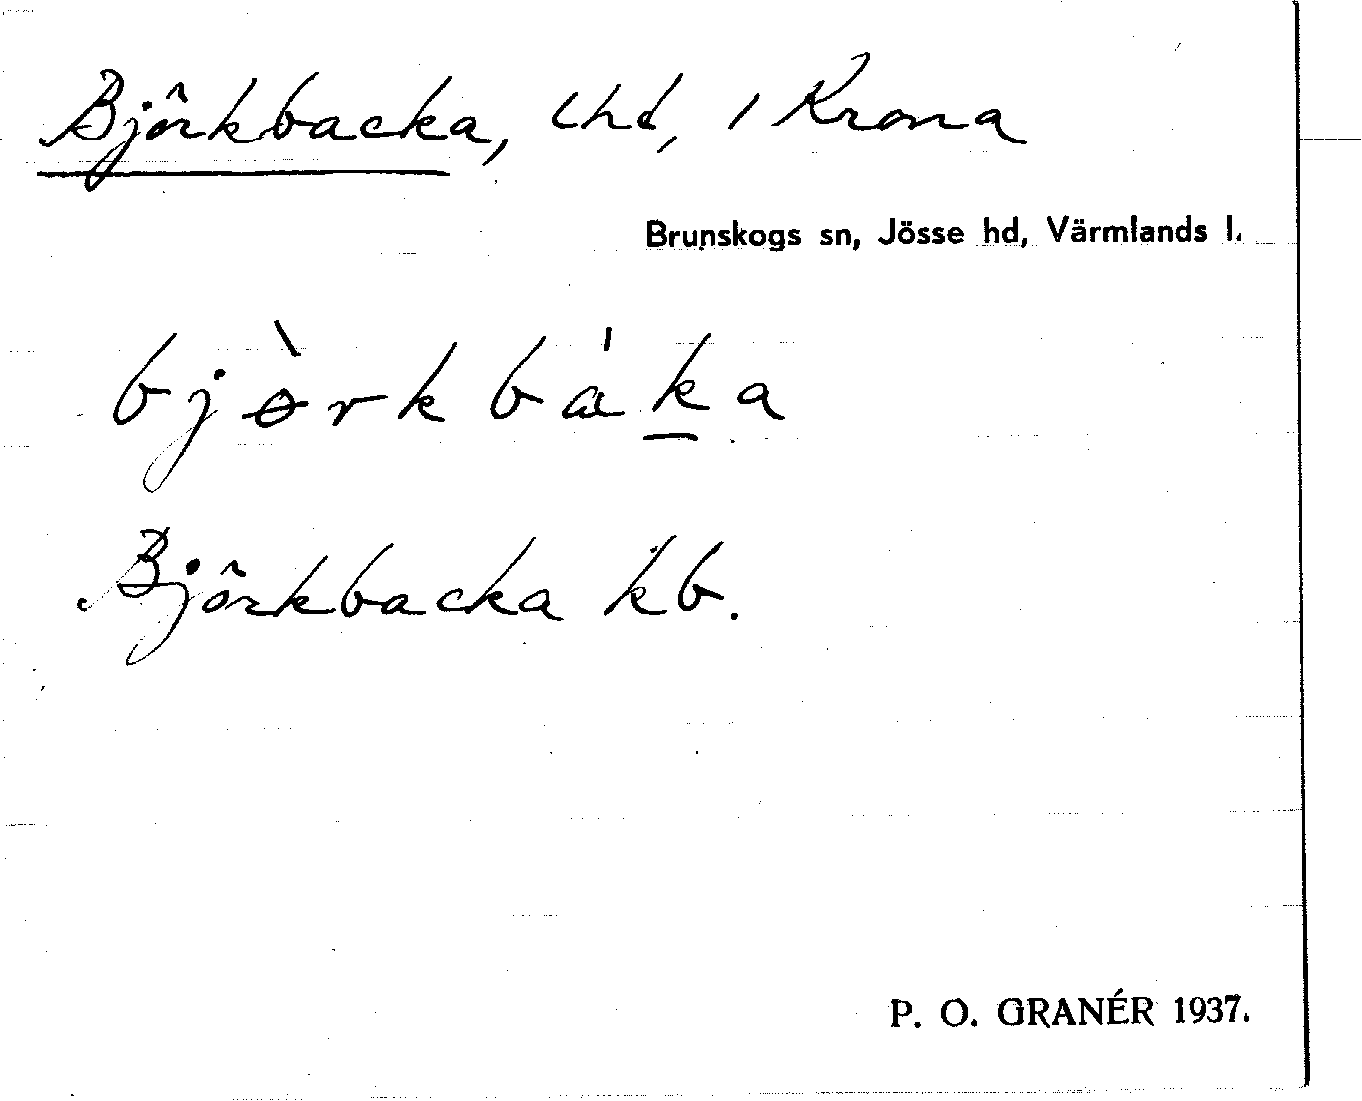 Björkbacka, lhd, / Krona
Brunskogs sn, Jösse hd, Värmlands l.
bjɵ̀rkbáka
Björkbacka kb.
P. O. GRANÉR 1937.